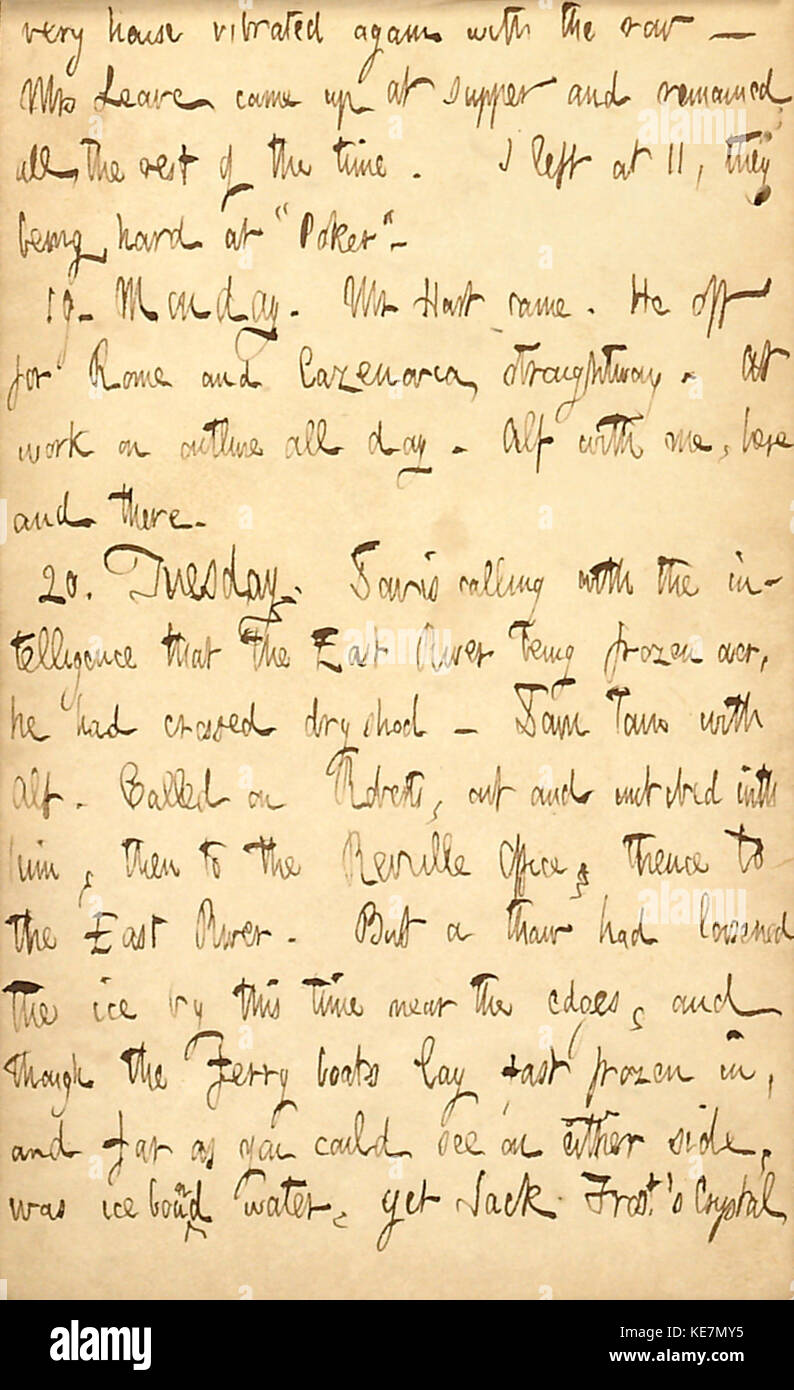 very house vibrated again with the row —
Mrs Leave came up at supper and remained
all the rest of the time. I left at 11, they
being hard at "Poker"-
19. Monday. Mr Hart came. He off
for Rome and Cazenovia straightway. At
work on outline all day. Alf with me, here
and there.
20. Tuesday. Davis calling with the in-
telligence that the East River being frozen over,
he had crossed dryshod — Down Town with
Alf. Called on Roberts, out and met with
him, then to the Reveille Office, thence to
the East River. But a thaw had loosened
the ice by this time near the edges, and
though the Ferry boats lay fast frozen in,
and far as you could see on either side,
was ice bound water, yet Jack Frost's Crystal
alamy
Image ID: KE7MY5
www.alamy.com